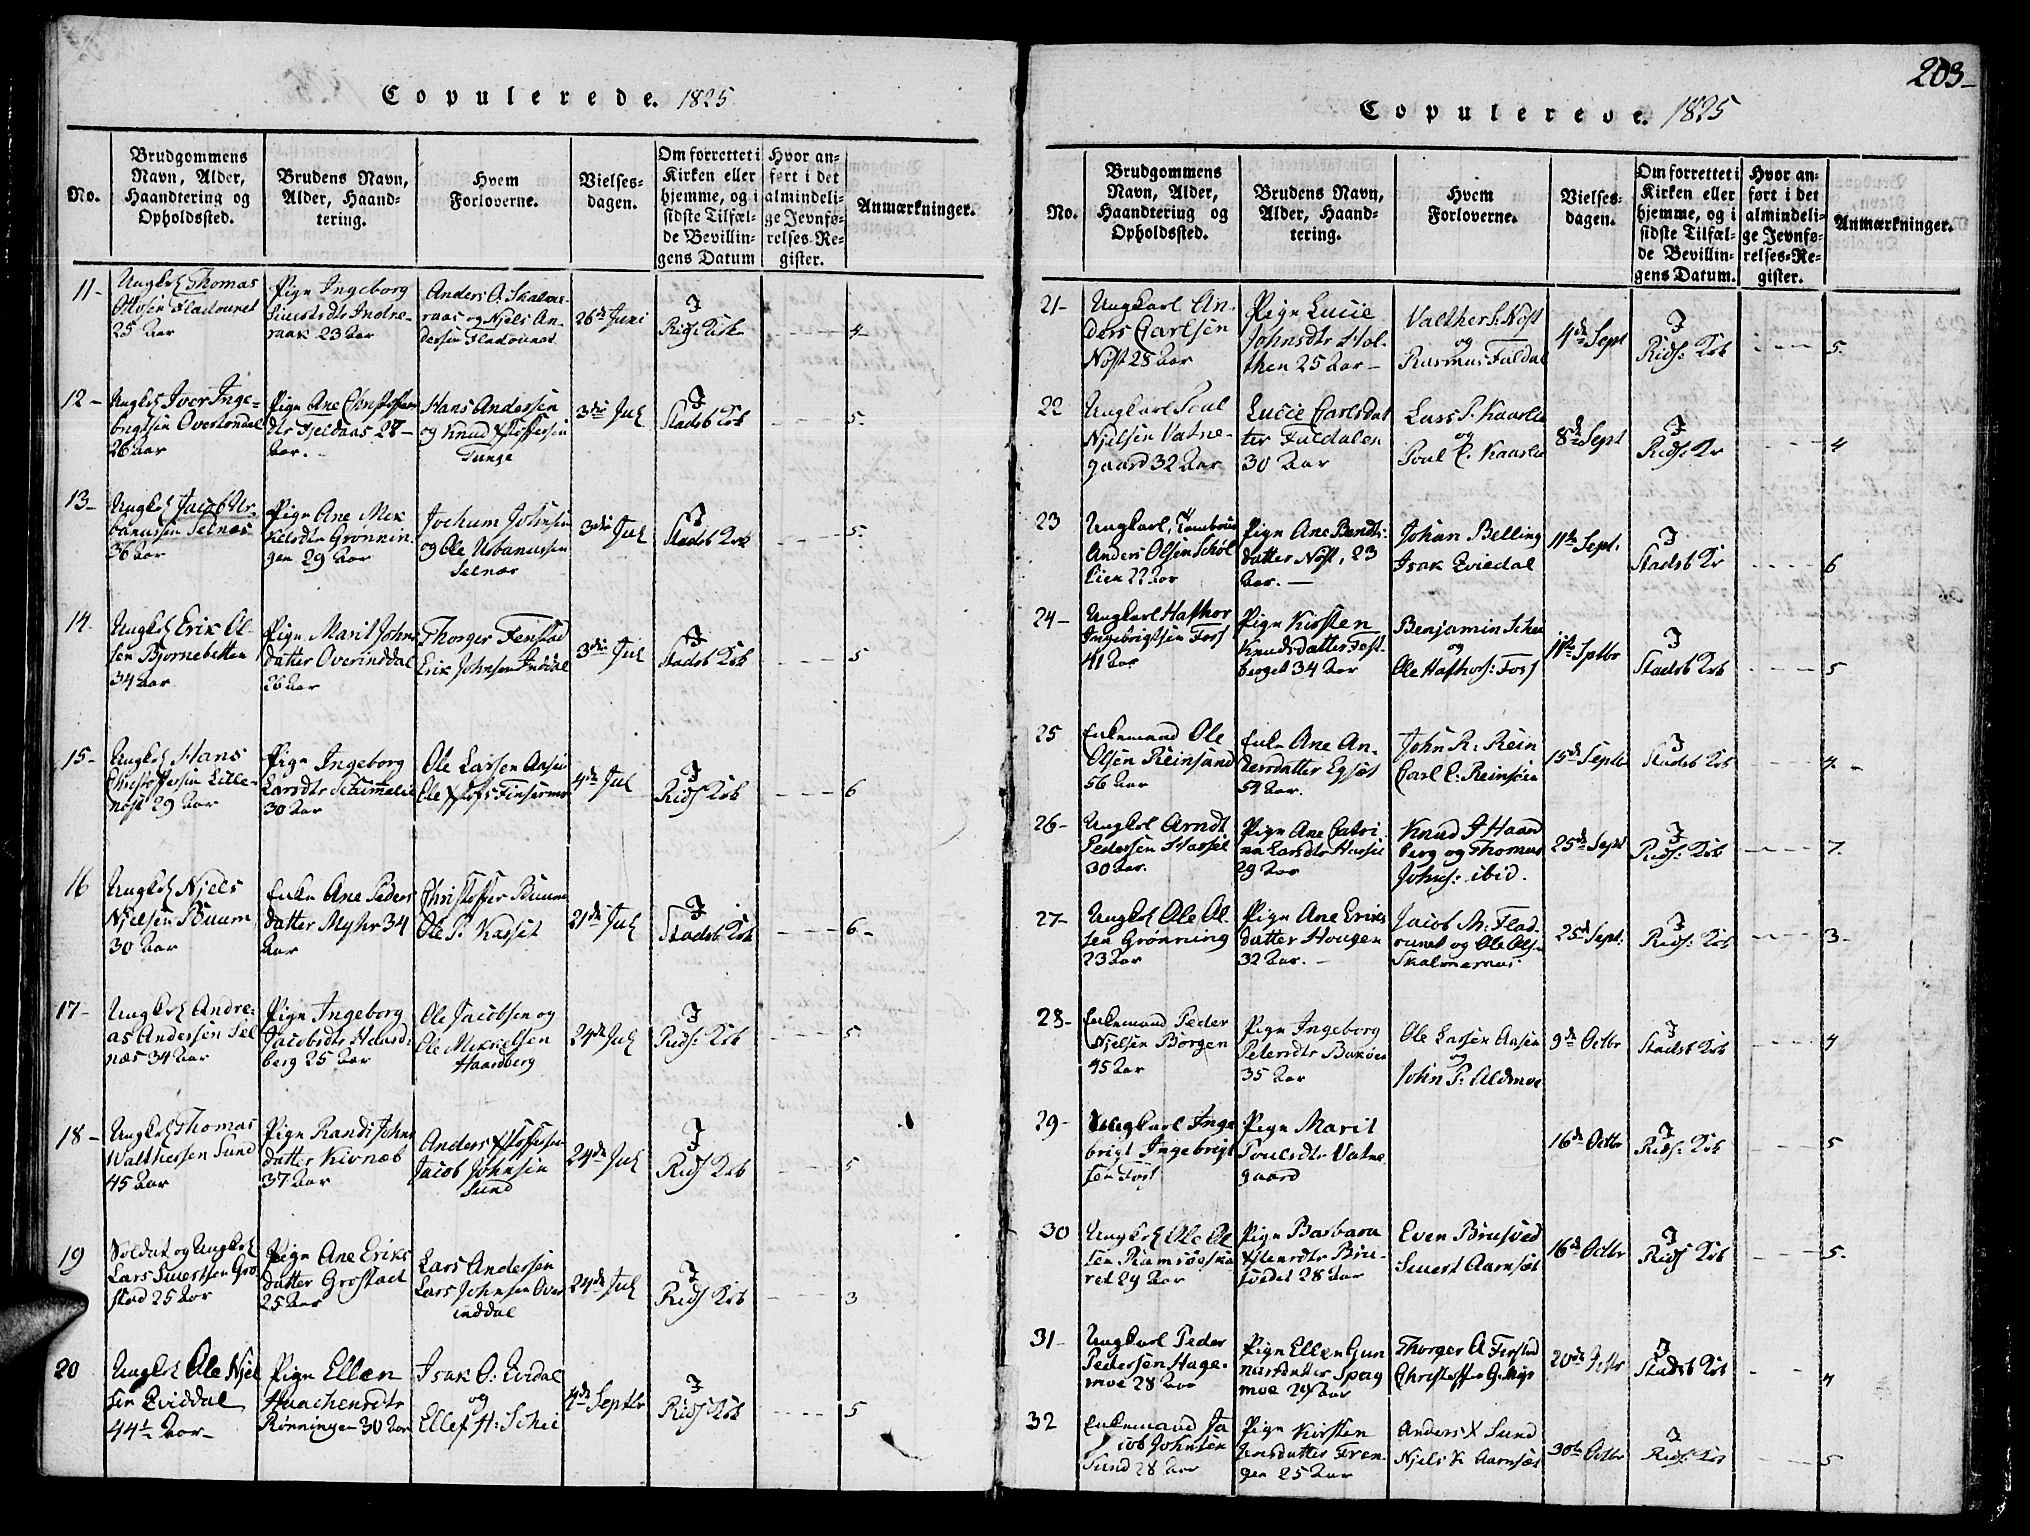 Copulerede. 1825
No.
Brudgommens
Navn, Alder,
Haandtering og
Opholdssted.
Brudens Navn,
Alder, Haand-
tering.
Hvem
Forloverne.
Vielses-
dagen.
Om forrettet i
Kirken eller
hjemme, og i
sidste Tilfæl-
de Bevillin-
gens Datum
Hvor an-
ført i det
almindeli-
ge Jevnfø-
relses-Re-
gister.
Anmærkninger.
11-
Ungkl Thomas
25 Aar
Pige Ingeborg
Siverts dtr Indre-
raak 23 Aar
Anders O. Skalme-
raas og Njels An-
dersen Fladvanet
26de Juni
I
Rids: Kirk
4-
12-
Ungkl Iver Inge-
brigtsen Overløndal
26 aar
Pige Ane Christoffers
dtr Tjeldaas 27-
Aar.-
Hans Andersen
og Knud Xstoffersen
Tunge
3die Jul
I
Stadsb Krk
5.
13-
Ungkl Jacob Ur-
banussen Selnæs
36 aar
Pige Ane Mik
kelsdtr Grønnin
gen 29 Aar
Jochum Johnsen
og Ole Urbanussen
Selnæs
3die Jul
I
Stadsb Krk
5.
14-
Ungkl Erik Ol-
sen Bjørnebetten
34 Aar
Pige Marit Johns
datter Overinddal
26 Aar
Thorger Fenstad
Erik Johnsen Inddal
3die Jul
I
Stadsb Krk
5
15-
Ungkl Hans
Christoffersen Lille-
nøst 29 Aar
Pige Ingeborg
Larsdtr Schumelie
30 Aar
Ole Larsen Aasen
4de Jul
I
Rids Krk
6
16
Ungkl Njels
Njelsen Buum
30 Aar
Enke Ane Peders
datter Myhr 34
Aar
Christoffer Buum
Ole P. Kasset
21de Jul
I
Stadsb Krk
6-
17-
Ungkl Andre-
as Andersen Sel
næs 34 Aar
Pige Ingeborg
Jacobsdtr Haard
berg 25 Aar
Ole Jacobsen og
Ole Mikkelsen
Haardberg
24de Jul
I
Rids: Krk
5.
18-
Ungkl Thomas
Walthersen Sund
45 Aar
Pige Randi Johns
datter Kivnæb
37 Aar
Anders Xstoffersen
Jacob Johnsen
Sund
24de Jul
I
Rids Krk
5
19
Soldat og Ungkl
Lars Sivertsen Gro
stad 25 Aar
Pige Ane Eriks
datter Grostad
25 Aar
Lars Andersen
Lars Johnsen Over
inddal
24de Jul
I
Rids Krk
3
20
Ungkl Ole Njel
sen Eviddal
44½ Aar-
Pige Ellen
Haachensdtr
Rønningen 30 Aar
Isak O. Evidal
og
Ellef H: Schei
4de Septbr
I
Rids Krk
5
203-
Copulerede. 1825
No.
Brudgommens
Navn, Alder,
Haandtering og
Opholdssted.
Brudens Navn,
Alder, Haand-
tering.
Hvem
Forloverne.
Vielses-
dagen.
Om forrettet i
Kirken eller
hjemme, og i
sidste Tilfæl-
de Bevillin-
gens Datum.
Hvor an-
ført i det
almindeli-
ge Jevnfø-
relses-Re-
gister.
Anmærkninger.
21-
Ungkarl An-
ders Carlsen
Nøst 28 Aar
Pige Lucie
Johnsdtr Hol-
then 25 Aar-
Valther S. Nøst
og
Rasmus Fuldal
4de Sept
I
Rids: Krk
5.
22
Ungkarl Poul
Njelsen Vatne-
gaard 32 Aar
Lucie Carlsdat
ter Fuldalen
30 Aar
Lars P. Kaarlie
og
Poul C. Kaarlie
8de Sept
I
Rids: Kr
4
23
Ungkarl, Tambour
Anders Olsen Schøl
lien 22 Aar
Pige Ane Bendts-
datter Nøst, 23
Aar.-
Johan Belling
Isak Eviedal
11te Sept:
I
Stadsb Kr
6
24-
Ungkarl Hafthor
Ingebrigtsen Foss
41 Aar
Pige Kirsten
Knudsdatter Fost
berget 34 Aar
Benjamin Schei
og
Ole Hafthors: Foss
11te Sptbr
I
Stadsb Krk
5
25
Enkemand Ole
Olsen Reinsund
56 Aar
Enke Ane An-
dersdatter Egset
54 Aar.
John R: Rein
Carl C: Reinsøen
15de Septbr
I
Stadsb Krk
4-
26-
Ungkrl Arndt
Pedersen Hassel
30 Aar.
Pige Ane Catri
na Larsdtr Hassel
29 Aar
Knud J Haard
berg og Thomas
Johns: ibid.
25de Sept
I
Rids: Krk
7.
27-
Ungkl Ole Ol-
sen Grønning
23 Aar
Pige Ane Eriks
datter Hougen
32 Aar.-
Jacob M: Flad-
vanet og Ole Olsen
Skalmeraas
25de Sept:
I
Rids: Krk
3-
28-
Enkemand Peder
Njelsen Borgen
45 Aar
Pige Ingeborg
Pedersdtr Bakøen
35 Aar
Ole Larsen Aasen
og
John P: Aldmoe
9de Octbr
I
Stadsb Krk
4
29-
Ungkarl Inge
brigt Ingebrigt
sen Fost
Pige Marit
Poulsdtr Vatne
gaard
16de Octbr
I
Rids: Krk
5
30
Ungkl Ole Ol
sen Ramsøeska
ret 24 Aar
Pige Barbara
Xstensdtr Bru-
svedet 28 Aar
Even Brusved
Sivert Aarnset
16de Octbr
I
Rids Krk
5.
31-
Ungkarl Peder
Pedersen Hage-
moe 28 Aar
Pige Ellen Gun
narsdatter Spørg
moe 24 Aar
Thorger A Fenstad
Christoffer G. Myr
20de Octbr
I
Stadsb Krk
4
32
Enkemand Ja
cob Johnsen
Sund 28 Aar
Pige Kirsten
Jensdatter Fren-
gen 25 Aar
Anders X Sund
Njels K Aarnset
30te Octbr
I
Rids: Krk
5